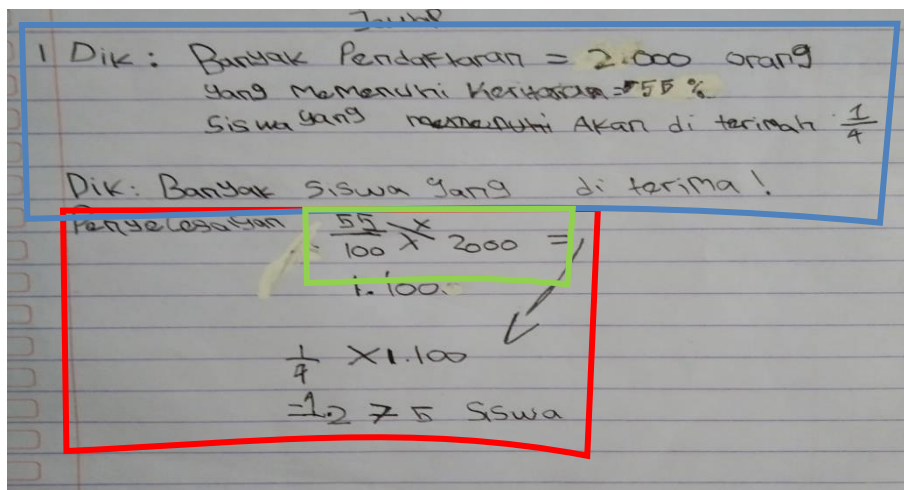 Jawab
1 Dik : Banyak Pendaftaran = 2.000 orang
yang memenuhi Keritaran = 55 %
Siswa yang memenuhi Akan di terimah 1/4
Dik : Banyak siswa yang di terima !
Penyelesaiyan 55/100 X 2000 =
1.100
1/4 X 1.100
= 1.275 Siswa